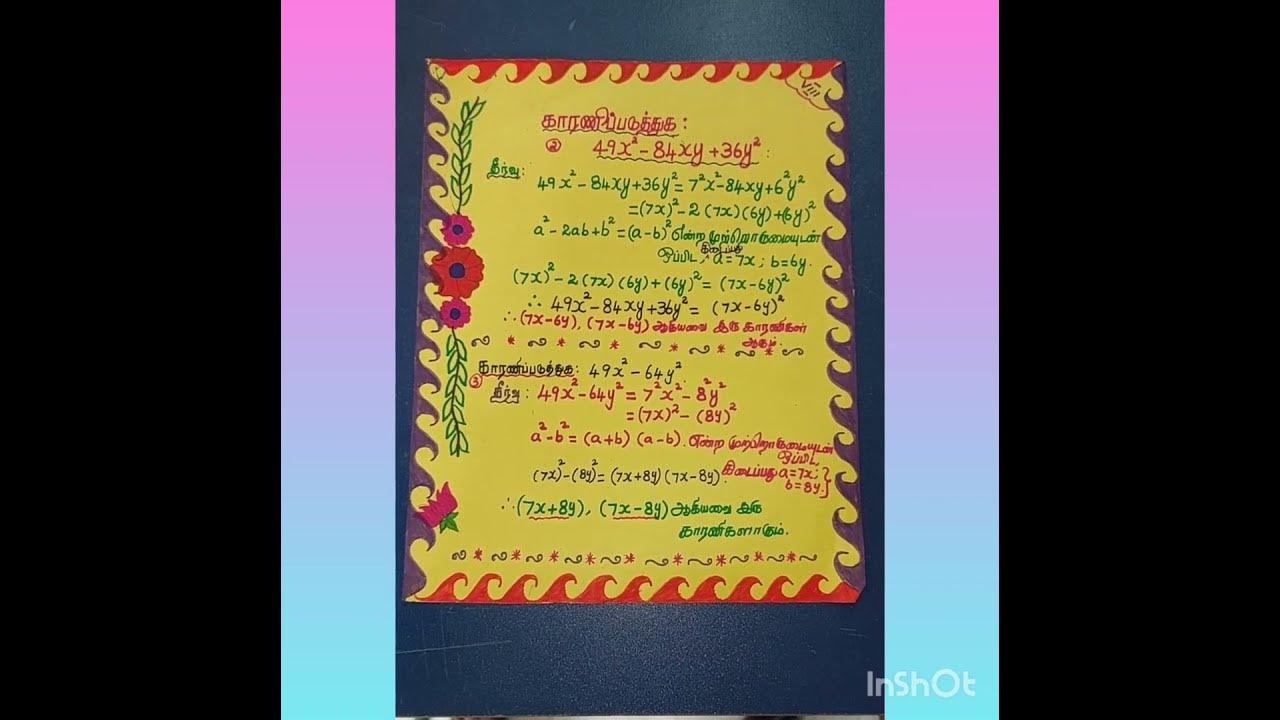 VIII
காரணிப்படுத்துக :
② 49x² - 84xy + 36y² :
தீர்வு :
49x² - 84xy + 36y² = 7²x² - 84xy + 6²y²
= (7x)² - 2 (7x) (6y) + (6y)²
a² - 2ab + b² = (a - b)² என்ற முற்றொருமையுடன்
ஒப்பிட, கிடைப்பது a = 7x ; b = 6y.
(7x)² - 2 (7x) (6y) + (6y)² = (7x - 6y)²
∴ 49x² - 84xy + 36y² = (7x - 6y)²
∴ (7x - 6y), (7x - 6y) ஆகியவை இரு காரணிகள்
ஆகும்.
காரணிப்படுத்துக : 49x² - 64y².
③
தீர்வு : 49x² - 64y² = 7²x² - 8²y²
= (7x)² - (8y)²
a² - b² = (a + b) (a - b). என்ற முற்றொருமையுடன்
ஒப்பிட,
(7x)² - (8y)² = (7x + 8y) (7x - 8y). கிடைப்பது a = 7x ; }
b = 8y. }
∴ (7x + 8y), (7x - 8y) ஆகியவை இரு
காரணிகளாகும்.
InShOt